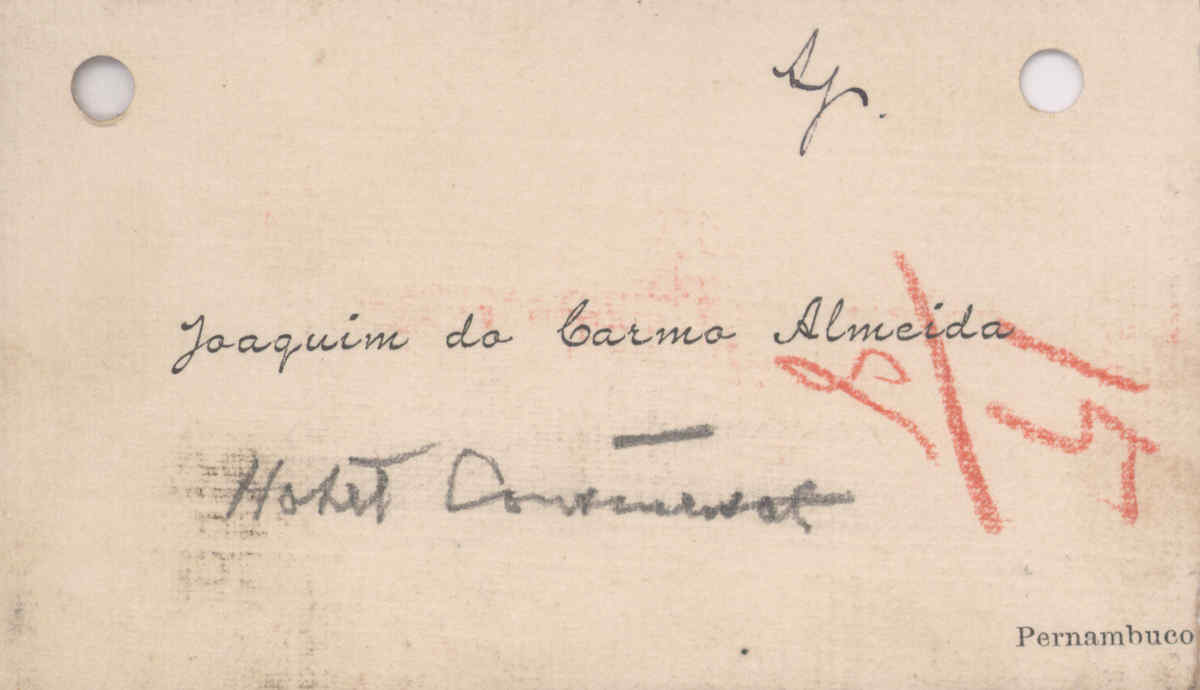 Joaquim do Carmo Almeida
Hotel Continental
Pernambuco